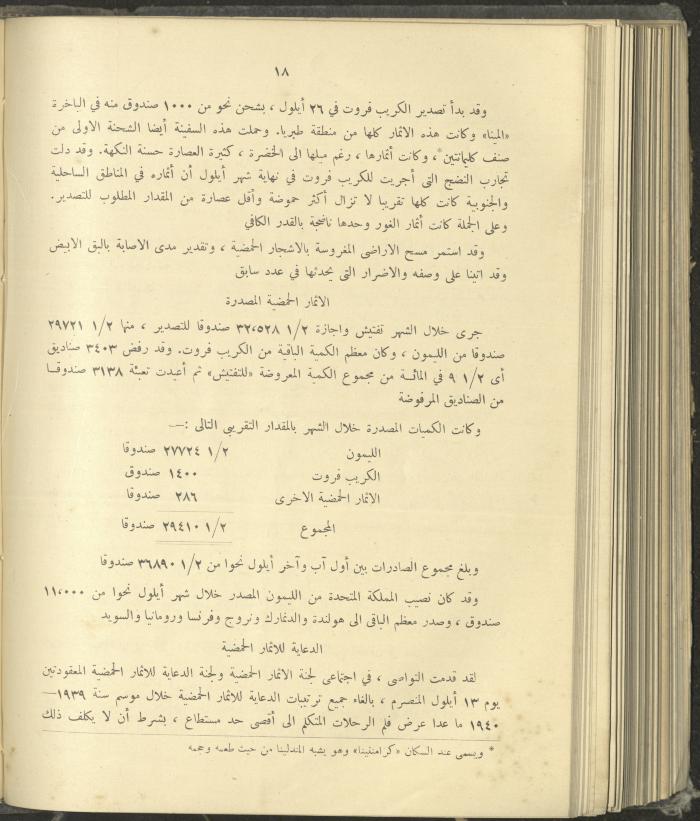 ١٨
وقد بدأ تصدير الكريب فروت في ٢٦ أيلول ، بشحن نحو من ١٠٠٠ صندوق منه في الباخرة
«المينا» وكانت هذه الاثمار كلها من منطقة طبريا. وحملت هذه السفينة أيضا الشحنة الاولى من
صنف كليمانتين*، وكانت أثمارها ، رغم ميلها الى الخضرة ، كثيرة العصارة حسنة النكهة. وقد دلت
تجارب النضج التى أجريت للكريب فروت في نهاية شهر أيلول أن أثماره في المناطق الساحلية
والجنوبية كانت كلها تقريبا لا تزال أكثر حموضة وأقل عصارة من المقدار المطلوب للتصدير.
وعلى الجملة كانت أثمار الغور وحدها ناضجة بالقدر الكافي
وقد استمر مسح الاراضى المغروسة بالاشجار الحمضية ، وتقدير مدى الاصابة بالبق الابيض
وقد اتينا على وصفه والاضرار التى يحدثها في عدد سابق
الاثمار الحمضية المصدرة
جرى خلال الشهر تفتيش واجازة ١/٢ ٣٢،٥٢٨ صندوقا للتصدير ، منها ١/٢ ٢٩٧٢١
صندوقا من الليمون ، وكان معظم الكمية الباقية من الكريب فروت. وقد رفض ٣٤٠٣ صناديق
أى ١/٢ ٩ في المائة من مجموع الكمية المعروضة «للتفتيش» ثم أعيدت تعبئة ٣١٣٨ صندوقا
من الصناديق المرفوضة
وكانت الكميات المصدرة خلال الشهر بالمقدار التقريبى التالى :—
الليمون ١/٢ ٢٧٧٢٤ صندوقا
الكريب فروت ١٤٠٠ صندوق
الاثمار الحمضية الاخرى ٢٨٦ صندوقا
المجموع ١/٢ ٢٩٤١٠ صندوقا
وبلغ مجموع الصادرات بين أول آب وآخر أيلول نحوا من ١/٢ ٣٦٨٩٠ صندوقا
وقد كان نصيب المملكة المتحدة من الليمون المصدر خلال شهر أيلول نحوا من ١١،٠٠٠
صندوق ، وصدر معظم الباقى الى هولندة والدنمارك ونروج وفرنسا ورومانيا والسويد
الدعاية للاثمار الحمضية
لقد قدمت التواصى ، في اجتماعى لجنة الاثمار الحمضية ولجنة الدعاية للاثمار الحمضية المعقودتين
يوم ١٣ أيلول المنصرم ، بالغاء جميع ترتيبات الدعاية للاثمار الحمضية خلال موسم سنة ١٩٣٩—
١٩٤٠ ما عدا عرض فلم الرحلات المتكلم الى أقصى حد مستطاع ، بشرط أن لا يكلف ذلك
* ويسمى عند السكان «كرامنتينا» وهو يشبه المندلينا من حيث طعمه وحجمه